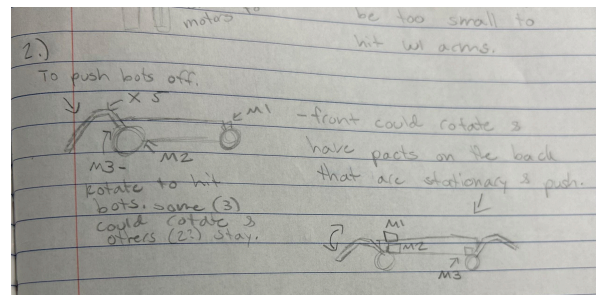 motors to
be too small to
hit w/ arms.
2.)
To push bots off.
x 5
M1
M2
M3-
Rotate to hit
bots. some (3)
could rotate &
others (2?) stay.
-front could rotate &
have parts on the back
that are stationary & push.
M1
M2
M3